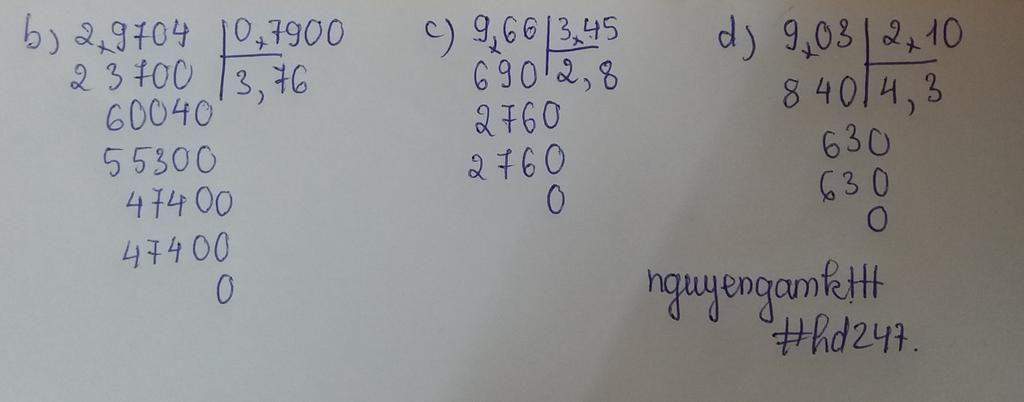 b) 2,9704 | 0,7900
23700 | 3,76
60040
55300
47400
47400
0
c) 9,66 | 3,45
690 | 2,8
2760
2760
0
d) 9,03 | 2,10
840 | 4,3
630
630
0
nguyengamktt
#hd247.